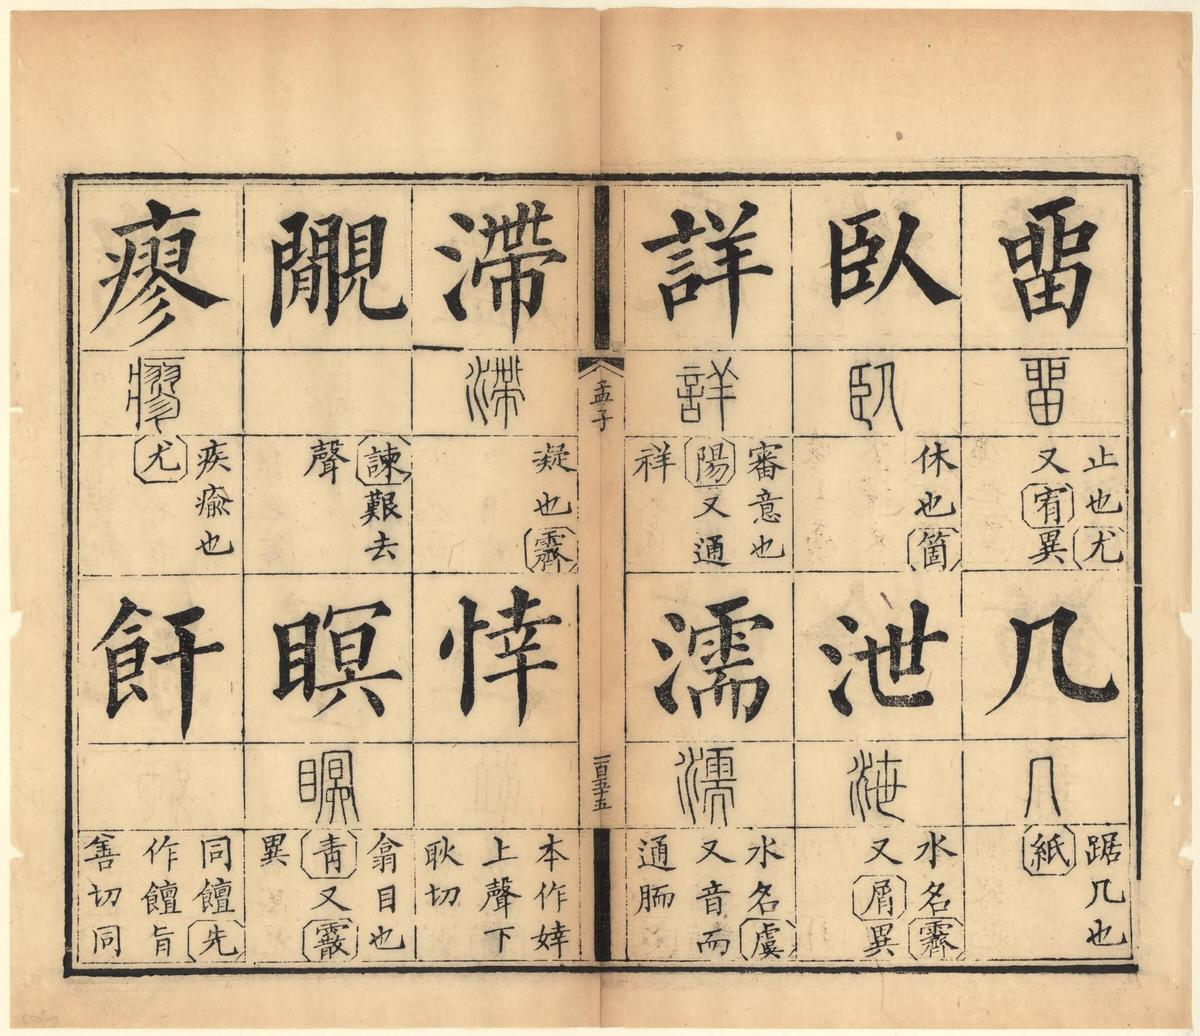 畱
畱
止也尤
又宥異
几
几
踞几也
紙
臥
臥
休也箇
泄
泄
水名霽
又屑異
詳
詳
審意也
陽又通
祥
濡
濡
水名虞
又音而
通胹
孟子
一百五十五
滯
滯
凝也霽
悻
本作婞
上聲下
耿切
覸
諫艱去
聲
瞑
瞑
翕目也
青又霰
異
瘳
瘳
疾瘉也
尤
飦
同饘先
作饘旨
善切同